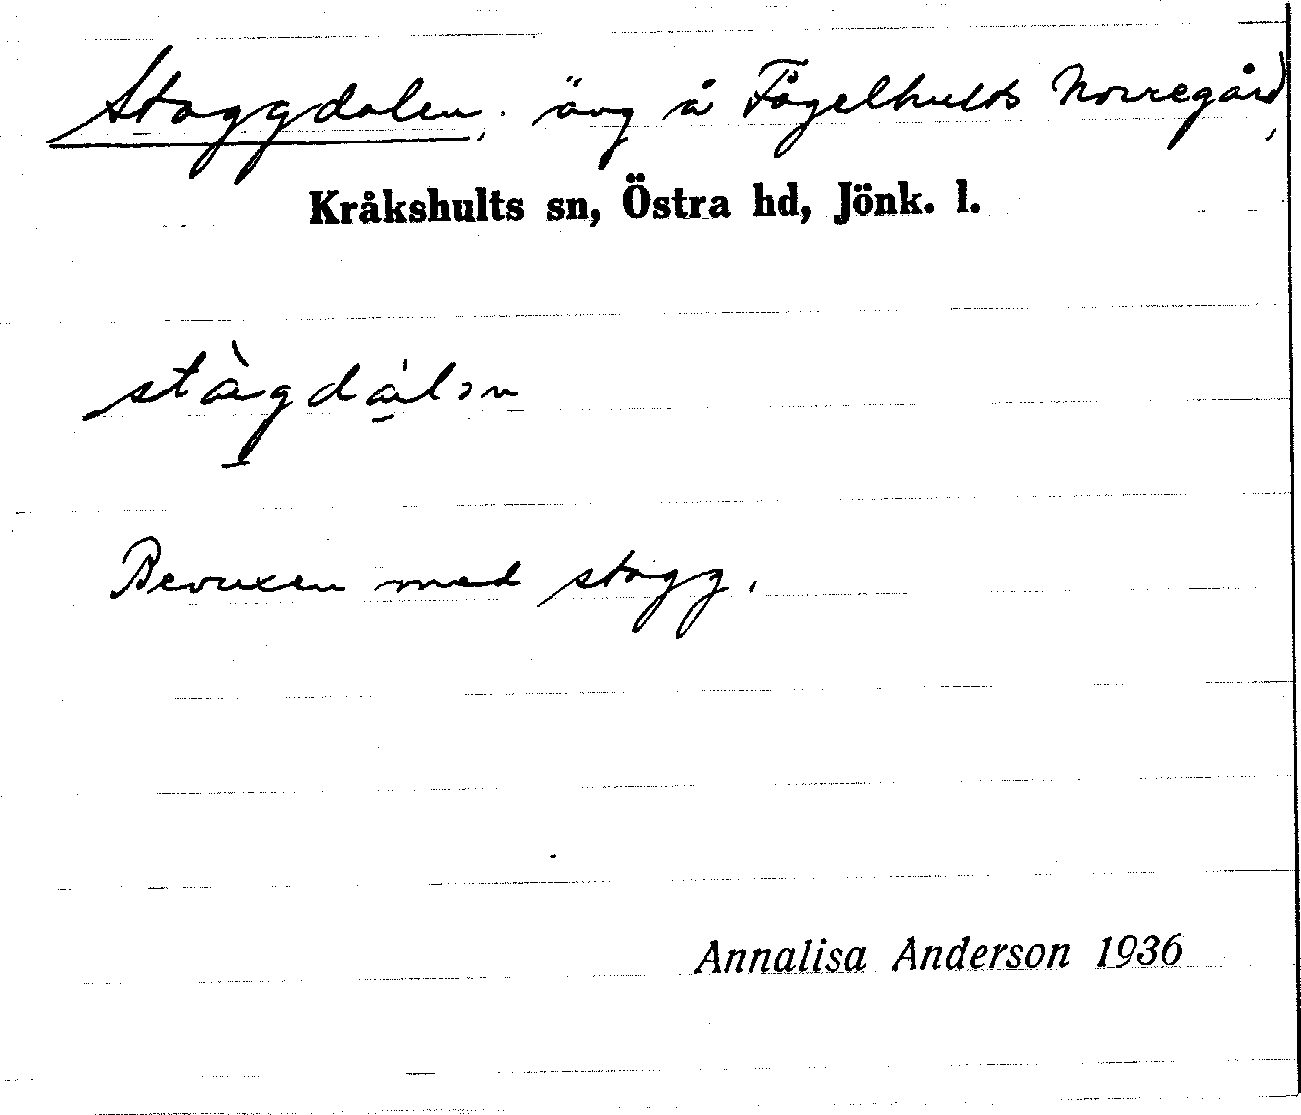 Staggdalen, äng å Fågelhults Norregård,
Kråkshults sn, Östra hd, Jönk. l.
stàg̱dá̱lən
Bevuxen med stagg.
Annalisa Anderson 1936